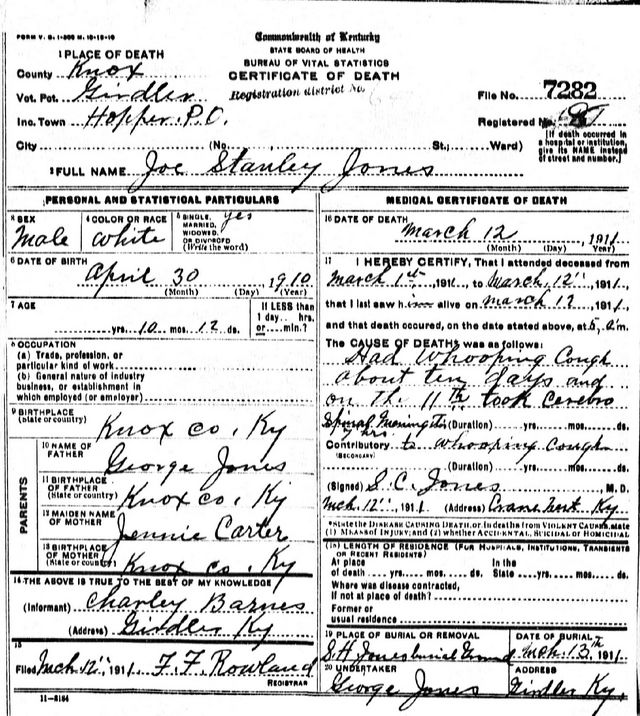 FORM V. S. 1-300 M. 10-18-10
Commonwealth of Kentucky
STATE BOARD OF HEALTH
BUREAU OF VITAL STATISTICS
CERTIFICATE OF DEATH
1 PLACE OF DEATH
County Knox
Vot. Pct. Girdler
Inc. Town Hopper P.O.
Registration district No.
File No. 7282
Registered No.
City (No. St.; Ward)
[If death occurred in a hospital or institution, give its NAME instead of street and number.]
2 FULL NAME Joe Stanley Jones
PERSONAL AND STATISTICAL PARTICULARS
3 SEX Male
4 COLOR OR RACE White
5 SINGLE, MARRIED, WIDOWED, OR DIVORCED (Write the word) yes
6 DATE OF BIRTH
April 30 1910
(Month) (Day) (Year)
7 AGE
yrs. 10 mos. 12 ds.
If LESS than 1 day___ hrs. or___min.?
8 OCCUPATION
(a) Trade, profession, or
particular kind of work
(b) General nature of industry
business, or establishment in
which employed (or employer)
9 BIRTHPLACE
(State or country) Knox co. Ky
PARENTS
10 NAME OF
FATHER George Jones
11 BIRTHPLACE
OF FATHER
(State or country) Knox co. Ky
12 MAIDEN NAME
OF MOTHER Jennie Carter
13 BIRTHPLACE
OF MOTHER
(State or country) Knox co. Ky
14 THE ABOVE IS TRUE TO THE BEST OF MY KNOWLEDGE
(Informant) Charley Barnes
(Address) Girdler Ky
15
Filed Mch. 12", 1911 F. F. Rowland
REGISTRAR
11-5184
MEDICAL CERTIFICATE OF DEATH
16 DATE OF DEATH
March 12 1911
(Month) (Day) (Year)
17 I HEREBY CERTIFY, That I attended deceased from
March 1st, 1911, to March 12", 1911,
that I last saw him alive on March 12 1911,
and that death occured, on the date stated above, at 5, a.m.
The CAUSE OF DEATH* was as follows:
Had Whooping Cough
about ten days and
on the 11th took cerebro
Spinal Meningitis (Duration) yrs. mos. ds.
Contributory to whooping cough
(SECONDARY)
(Duration) yrs. mos. ds.
(Signed) S. C. Jones, M. D.
Mch. 12", 1911 (Address) Ky
*State the DISEASE CAUSING DEATH, or in deaths from VIOLENT CAUSES, state
(1) MEANS OF INJURY; and (2) whether ACCIDENTAL, SUICIDAL or HOMICIDAL
18 LENGTH OF RESIDENCE (FOR HOSPITALS, INSTITUTIONS, TRANSIENTS
OR RECENT RESIDENTS)
At place In the
of death yrs. mos. ds. State yrs. mos. ds.
Where was disease contracted,
if not at place of death?
Former or
usual residence
19 PLACE OF BURIAL OR REMOVAL
S. H. Jones burial Ground
DATE OF BURIAL
Mch. 13th 1911
20 UNDERTAKER
George Jones
ADDRESS
Girdler Ky.